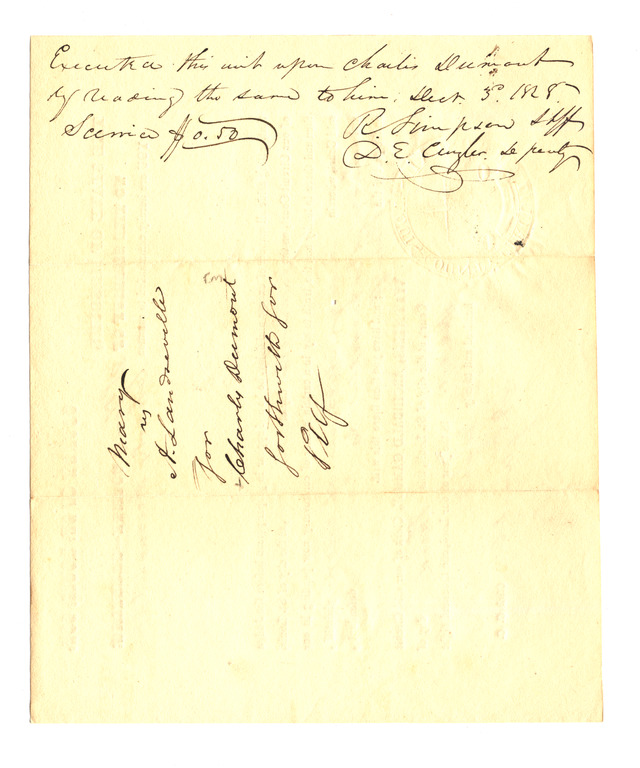 Executed this writ upon Charles Dumont
by reading the same to him. Dect. 3d. 1828.
Service $0.50
R Simpson Shff
D. E. Cuyler Deputy
Mary
vs
A. Landreville
for
Charles Dumont
forthwith for
Plf